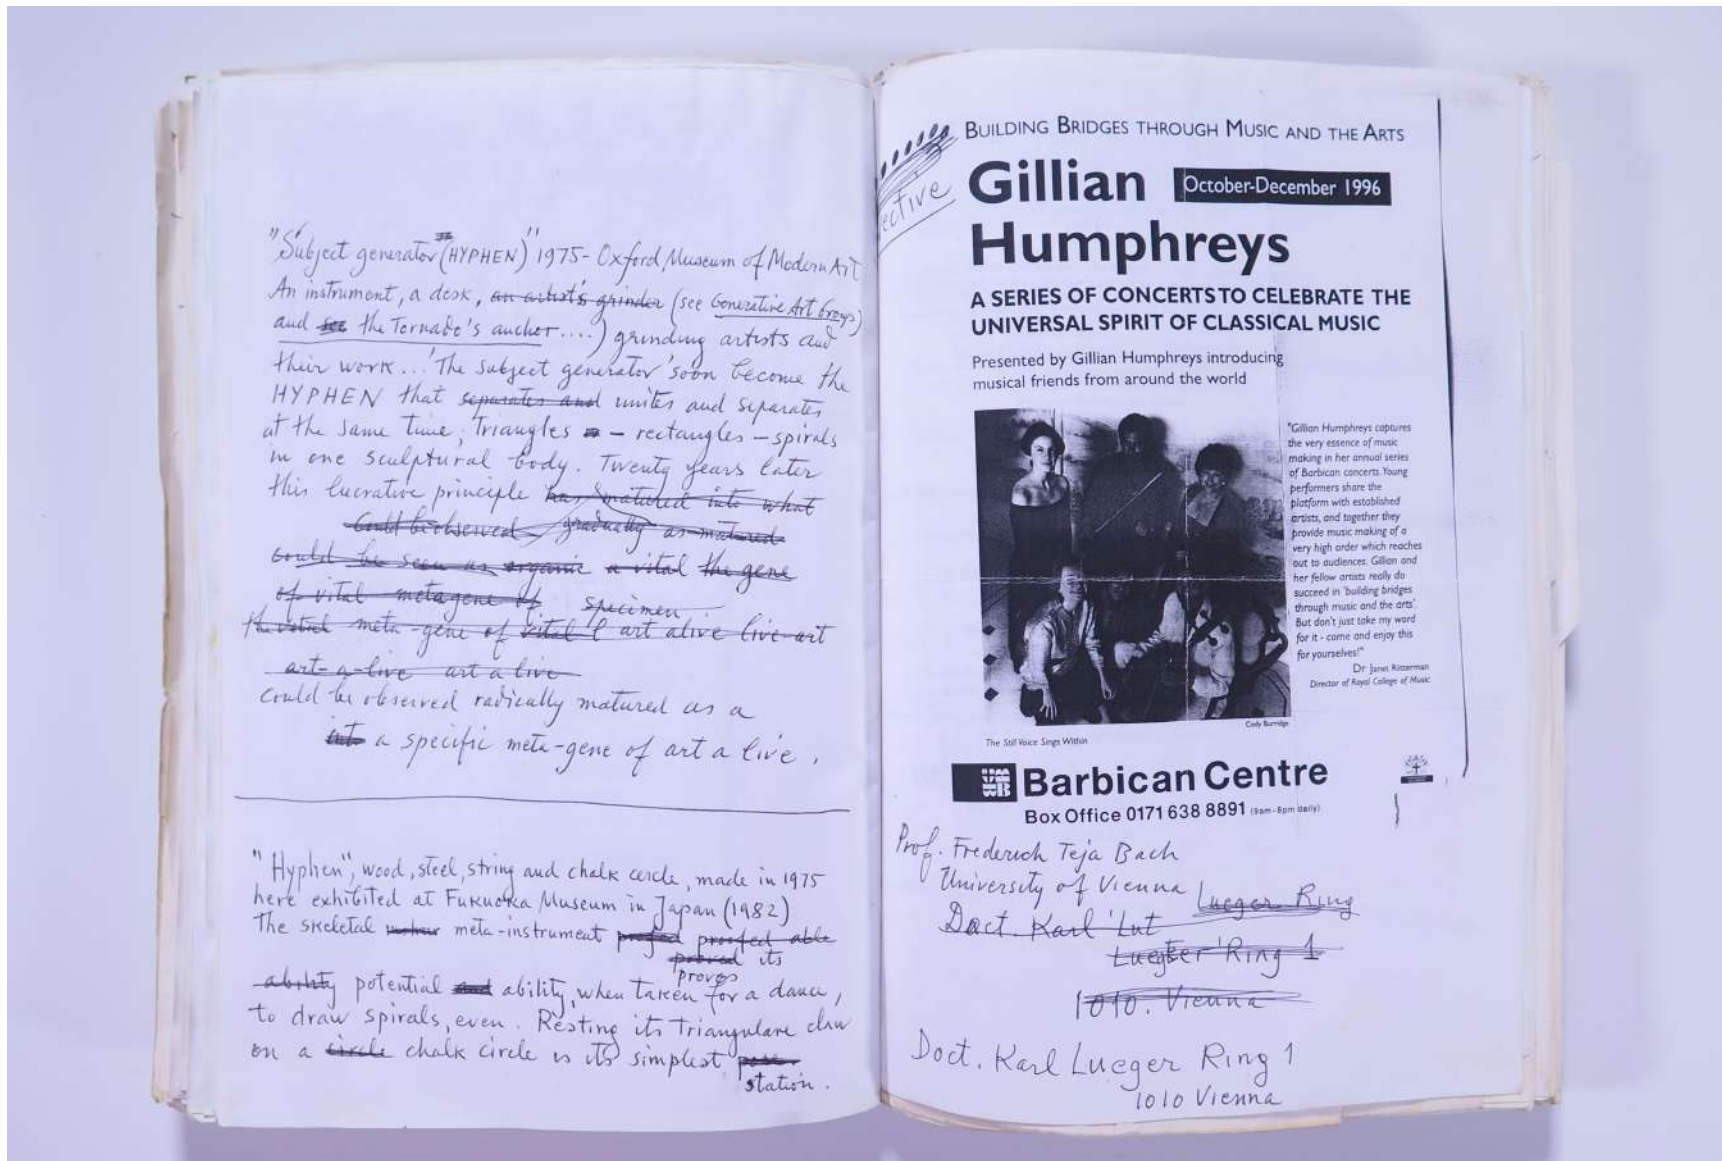 "Subject generator (HYPHEN)" 1975 - Oxford, Museum of Modern Art
An instrument, a desk, an artist's grinder (see Generative Art Group)
and see the Tornado's anchor....) grinding artists and
their work... 'The subject generator' soon become the
HYPHEN that separates and unites and separates
at the same time; Triangles - rectangles - spirals
in one sculptural body. Twenty years later
this lucrative principle has matured into what
could be observed gradually as matured
could be seen as organic a vital the gene
of vital metagene of specimen
the vital meta-gene of vital art alive live-art
art-a-live art a live
could be observed radically matured as a
into a specific meta-gene of art a live.
"Hyphen", wood, steel, string and chalk circle, made in 1975
here exhibited at Fukuoka Museum in Japan (1982)
The skeletal meta-instrument proofed able
proved its
proves
ability potential and ability, when taken for a dance,
to draw spirals, even. Resting its triangulare claw
on a circle chalk circle is its simplest pose
station.
ective
BUILDING BRIDGES THROUGH MUSIC AND THE ARTS
Gillian
October-December 1996
Humphreys
A SERIES OF CONCERTS TO CELEBRATE THE
UNIVERSAL SPIRIT OF CLASSICAL MUSIC
Presented by Gillian Humphreys introducing
musical friends from around the world
"Gillian Humphreys captures
the very essence of music
making in her annual series
of Barbican concerts. Young
performers share the
platform with established
artists, and together they
provide music making of a
very high order which reaches
out to audiences. Gillian and
her fellow artists really do
succeed in 'building bridges
through music and the arts'.
But don't just take my word
for it - come and enjoy this
for yourselves!"
Dr Janet Ritterman
Director of Royal College of Music
Cody Burridge
The Still Voice Sings Within
Barbican Centre
Box Office 0171 638 8891 (9am-8pm daily)
Prof. Frederich Teja Bach
University of Vienna Lueger Ring
Doct. Karl Lut
Luegger Ring 1
1010. Vienna
Doct. Karl Lueger Ring 1
1010 Vienna